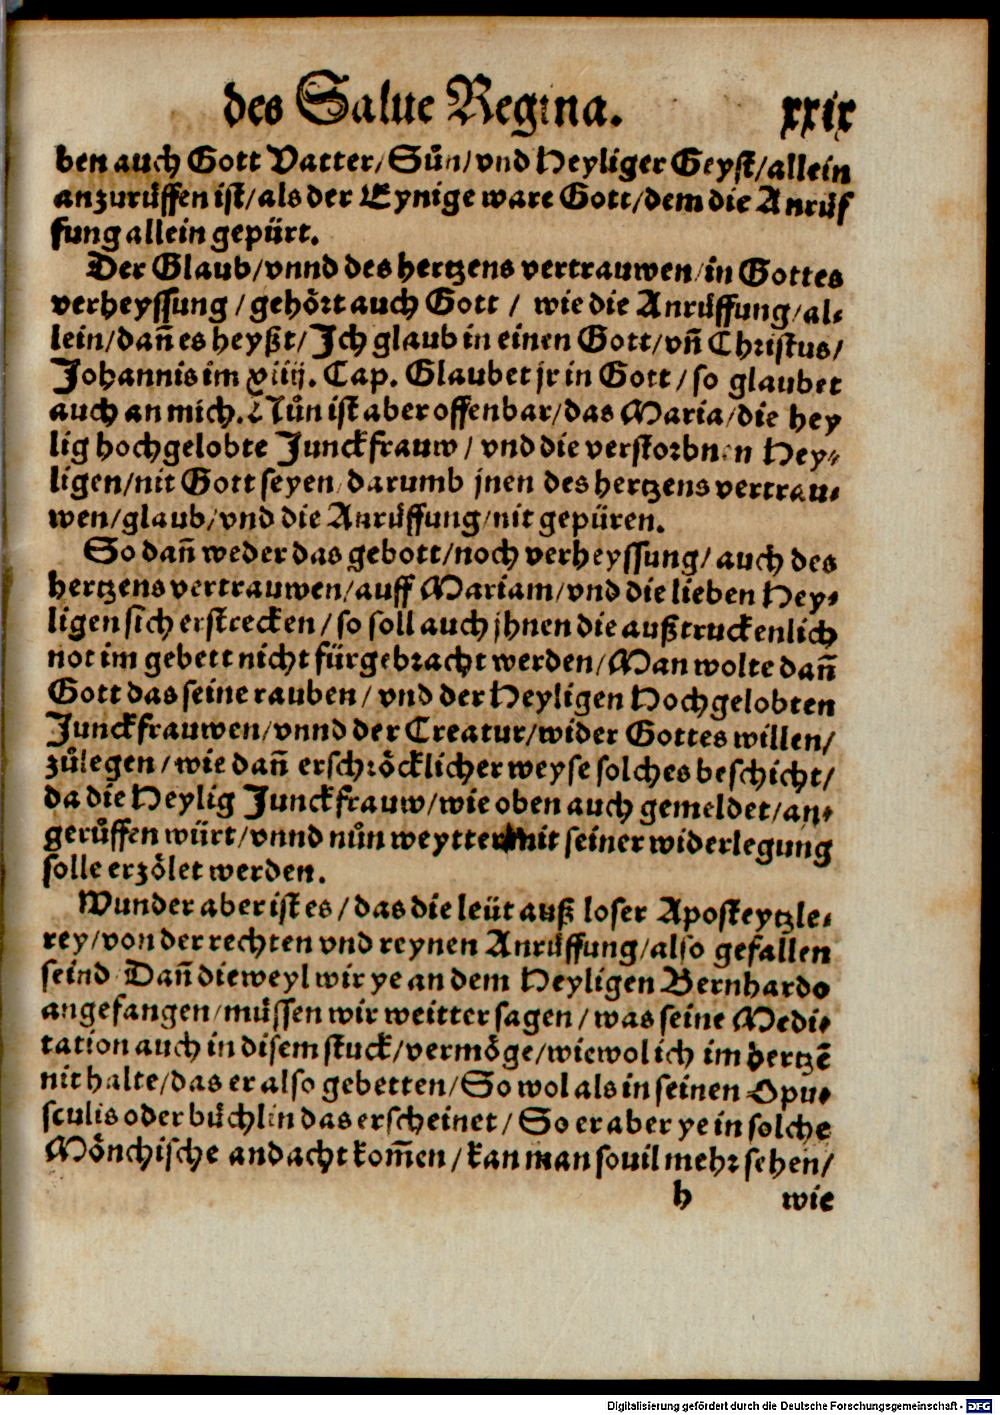 des Salue Regina. xxix
ben auch Gott Vatter/ Sůn/ vnd Heyliger Geyst/ allein
anzurůffen ist/ als der Eynige ware Gott/ dem die Anrůf
fung allein gepürt.
Der Glaub/ vnnd des hertzens vertrauwen/ in Gottes
verheyssung / gehört auch Gott / wie die Anrůffung/ al⸗
lein/ dañ es heyßt/ Jch glaub in einen Gott/ vñ Christus/
Johannis im xiiij. Cap. Glaubet jr in Gott / so glaubet
auch an mich. Nůn ist aber offenbar/ das Maria/ die hey
lig hochgelobte Junckfrauw / vnd die verstorbnen Hey⸗
ligen/ nit Gott seyen/ darumb jnen des hertzens vertrau⸗
wen/ glaub/ vnd die Anrůffung/ nit gepüren.
So dañ weder das gebott/ noch verheyssung/ auch des
hertzens vertrauwen/ auff Mariam/ vnd die lieben Hey⸗
ligen sich erstrecken / so soll auch jhnen die außtruckenlich
not im gebett nicht fürgebracht werden/ Man wolte dañ
Gott das seine rauben / vnd der Heyligen Hochgelobten
Junckfrauwen/ vnnd der Creatur/ wider Gottes willen/
zůlegen / wie dañ erschröcklicher weyse solches beschicht/
da die Heylig Junckfrauw/ wie oben auch gemeldet/ an⸗
gerůffen würt/ vnnd nůn weytter mit seiner widerlegung
solle erzölet werden.
Wunder aber ist es / das die leüt auß loser Aposteytzle⸗
rey/ von der rechten vnd reynen Anrůffung/ also gefallen
seind. Dañ dieweyl wir ye an dem Heyligen Bernhardo
angefangen/ müssen wir weitter sagen / was seine Medi⸗
tation auch in disem stuck/ vermöge/ wiewol ich im hertzẽ
nit halte/ das er also gebetten/ So wol als in seinen Opu⸗
sculis oder bůchlin das erscheinet / So er aber ye in solche
Mönchische andacht kom̃en / kan man souil mehr sehen/
h wie
Digitalisierung gefördert durch die Deutsche Forschungsgemeinschaft - DFG